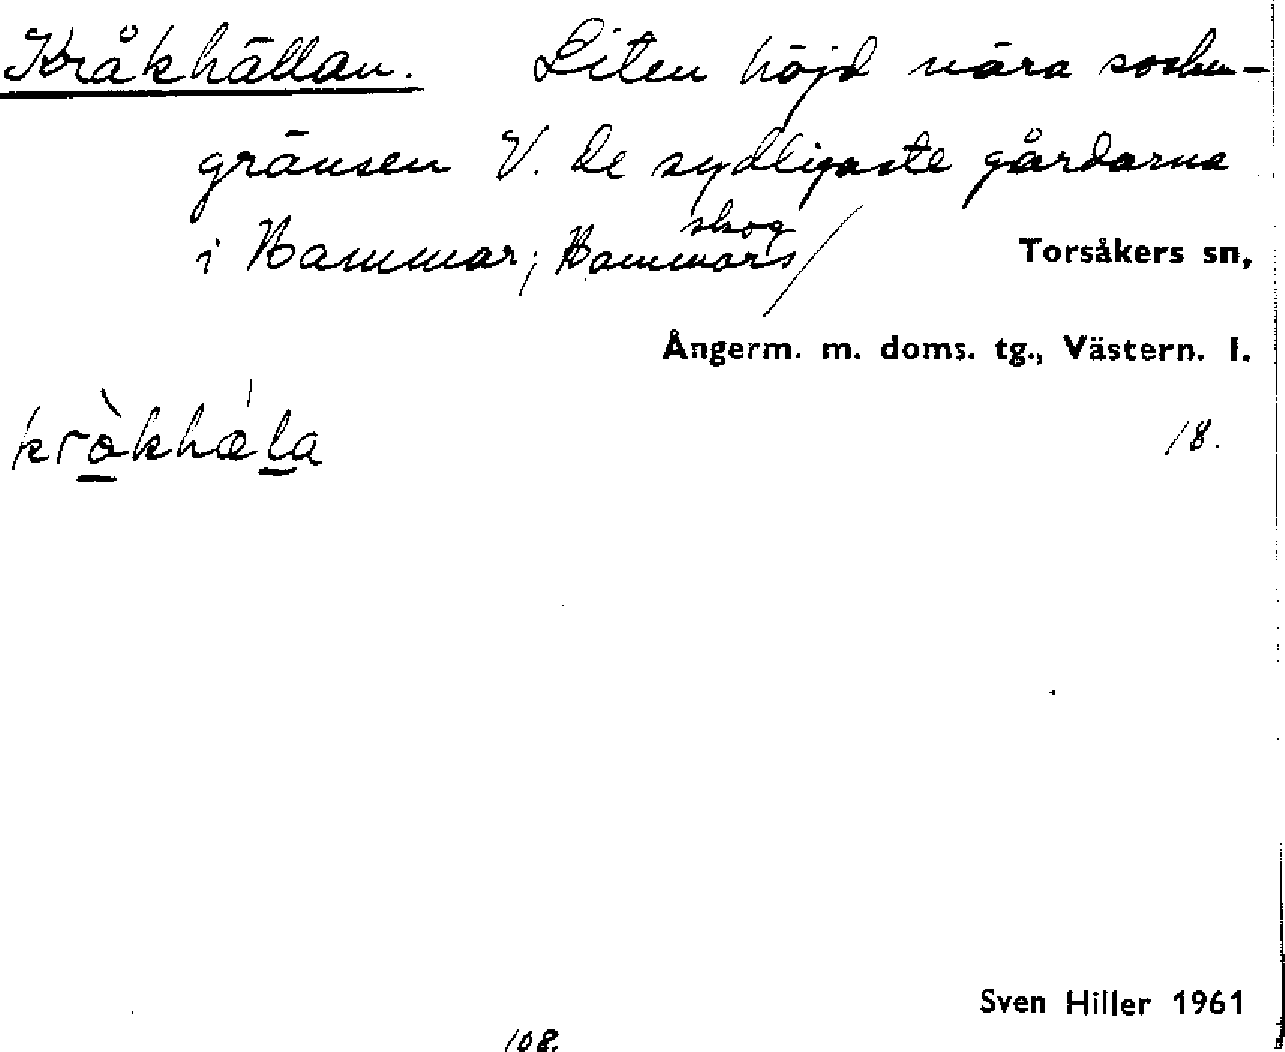 Kråkhällan. Liten höjd nära socken-
gränsen V. de sydligaste gårdarna
i Hammar; Hammars skog/
Torsåkers sn,
Ångerm. m. doms. tg., Västern. l.
kråkhæla
18.
Sven Hiller 1961
108.